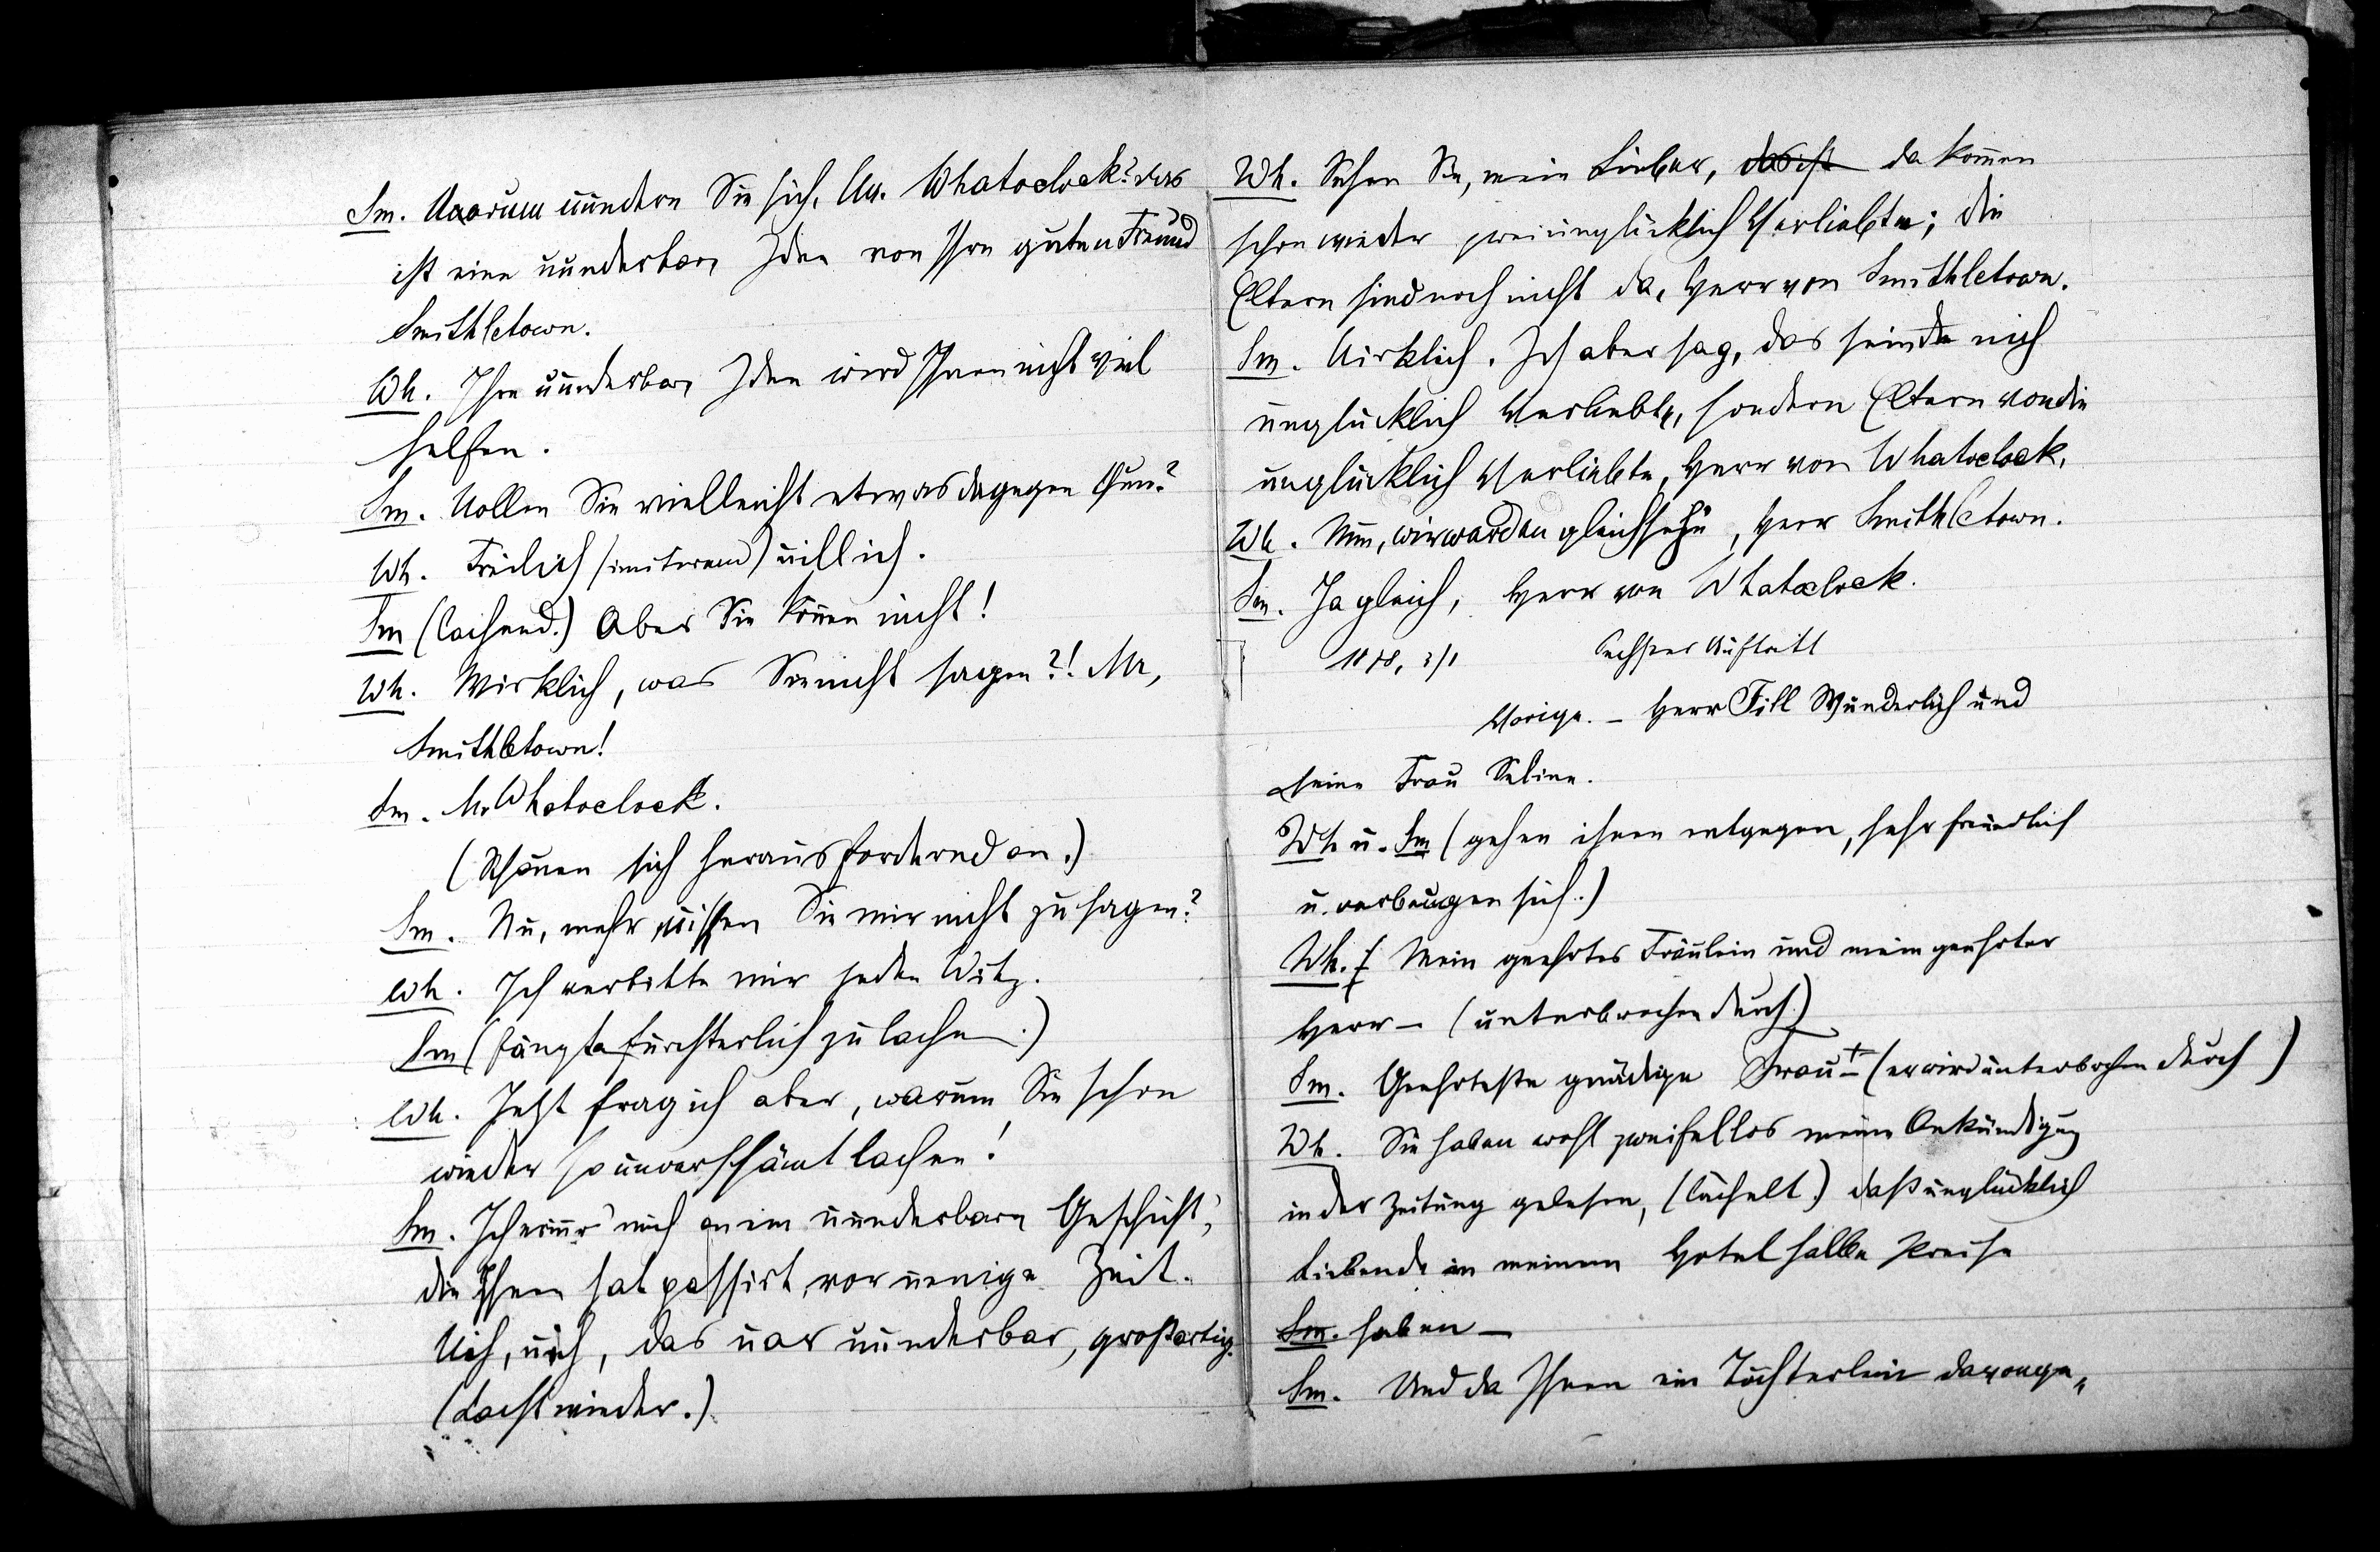 Sm. Uarum uundern Sie sich, Mr. Whatoclock? das
ist eine uunderbare Idee von Ihre guten Freund
Smithletown.
Wh. Ihre uunderbare Idee wird Ihnen nicht viel
helfen.
Sm. Uollen Sie vielleicht etwas dagegen thun?
Wh. Freilich (imitirend) uill ich.
Sm (lachend.) Aber Sie können nicht!
Wh. Wirklich, was Sie nicht sagen?! Mr,
Smithletown!
Sm. Mr Whatoclock.
(Schauen sich herausfordernd an.)
Sm. Nu, mehr uissen Sie mir nicht zu sagen?
Wh. Ich verbitte mir jeden Witz.
Sm (fängt fürchterlich zu lachen.)
Wh. Jetzt frag ich aber, warum Sie schon
wieder so unverschämt lachen!
Sm. Ich erinnr' mich an ein uunderbare Geschicht',
die Ihnen hat passirt, vor uenige Zeit.
Uih, uih, das uar uunderbar, großartig.
(Lacht wieder.)
Wh. Sehen Sie, mein Lieber, das ist da kommen
schon wieder zwei unglücklich Verliebte; die
Eltern sind noch nicht da, Herr von Smithletown.
Sm. Uirklich. Ich aber sag, das seind nich
unglücklich Verliebte, sondern Eltern von die
unglücklich Verliebte, Herr von Whatoclock.
Wh. Nun, wir werden gleich sehn, Herr Smithletown.
Sm. Ja gleich, Herr von Whatoclock.
Sechster Auftritt
Vorige. – Herr Till Wunderlich und
seine Frau Seline.
Wh u. Sm (gehen ihnen entgegen, sehr freundlich
u. verbeugen sich.)
Wh. Mein geehrtes Fräulein und mein geehrter
Herr – (unterbrochen durch.)
Sm. Geehrteste gnädige Frau – (er wird unterbrochen durch)
Wh. Sie haben wohl zweifellos meine Ankündigung
in der Zeitung gelesen, (lächelt.) daß unglücklich
Liebende in meinem Hotel halbe Preise
Sm. haben –
Sm. Und da Ihnen ein Töchterlein davonge„